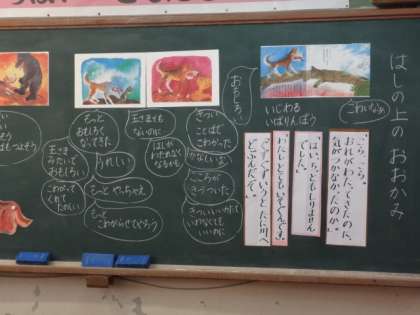 はしの上のおおかみ
こわいなあ
いじわる
いばりんぼう
おもしろい
こら、こら。
おれがわたってきたのに、
気がつかなかったのか。
はい、ちっともしりません
でした。
わたしどもいそぐんです。
ぐずぐずいうと、たに川へ
どぶんだぞ。
きつい
ことばで
こわかった
かなしいよ
こころが
きずついた
きついいいかたで
いわなくても
いいのに
王さまでも
ないのに
はしが
わたれなく
なるかも
もっと
おもしろく
なってきた
うれしい
もっとやっちゃえ
もっと
こわがらせてやろう
王さま
みたいで
おもしろい
こわがって
くれて
たのしい